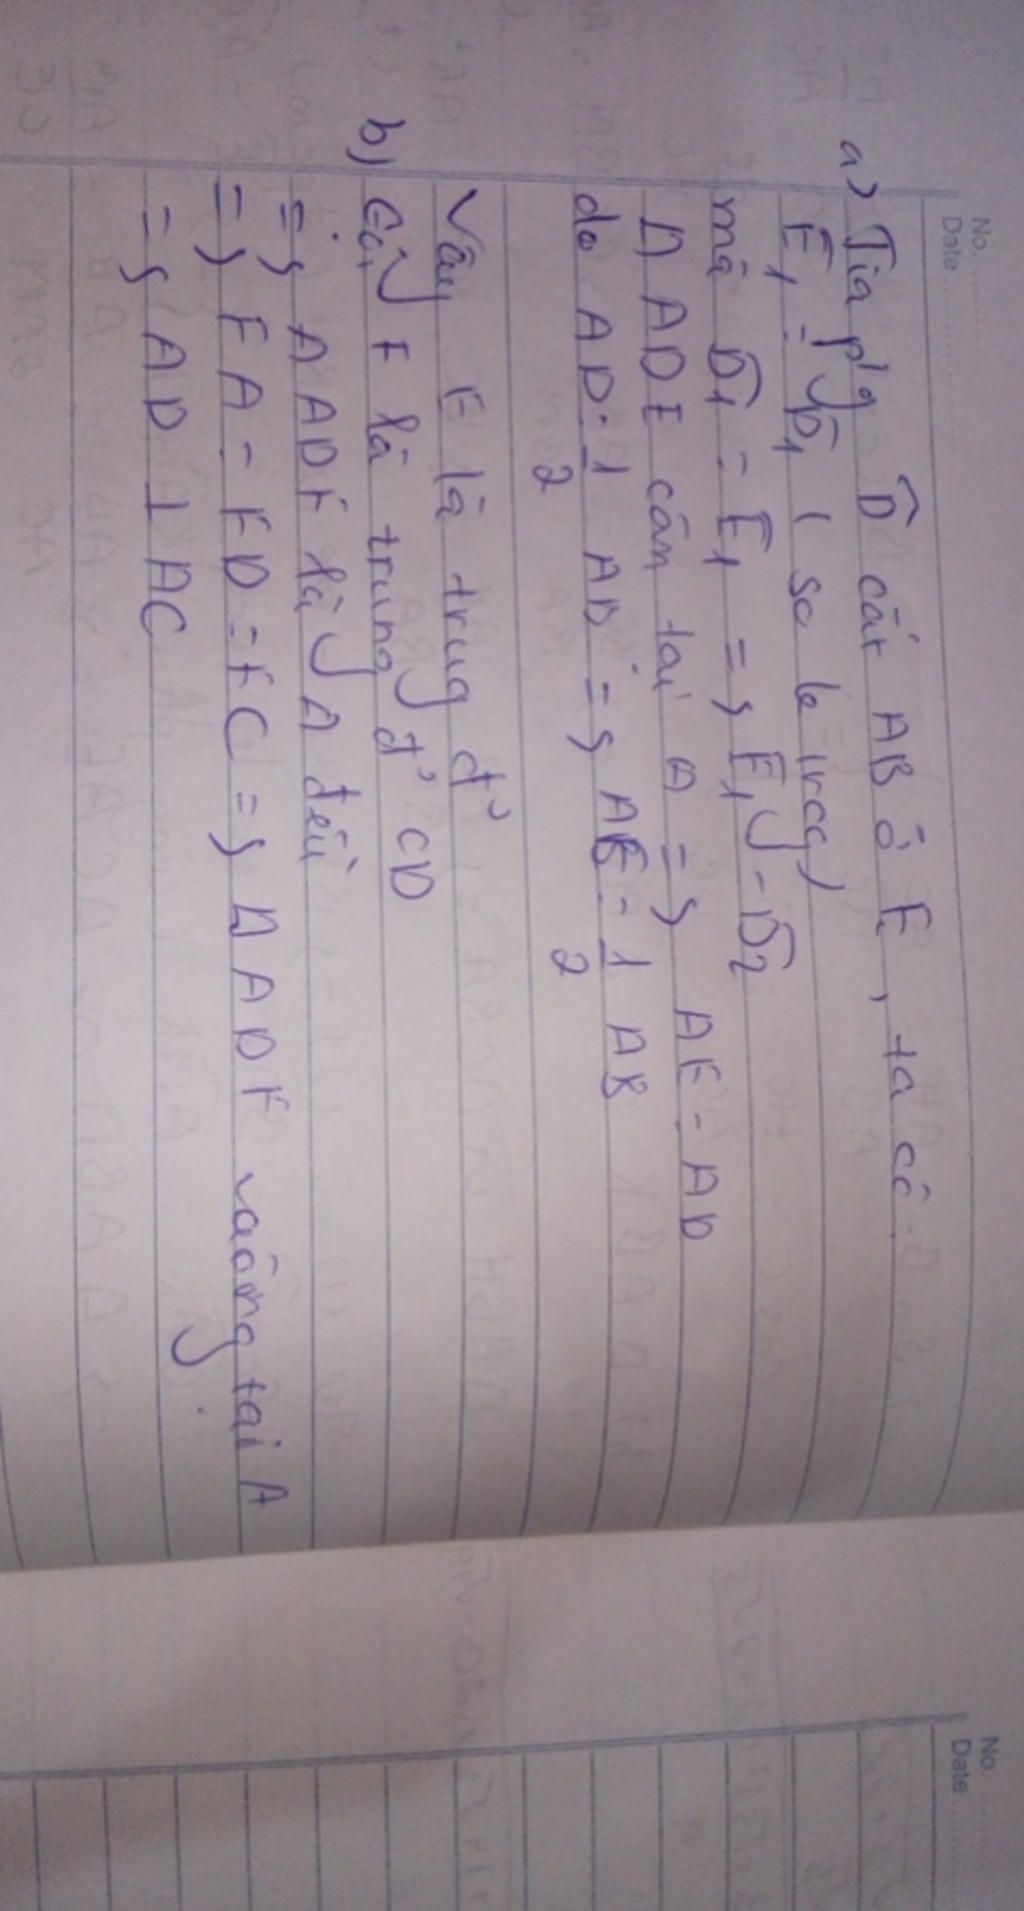 No.
Date
a) Tia p/g D̂ cắt AB ở E, ta có
Ê₁ = D̂₁ ( so le trong)
mà D̂₁ = Ê₁ => Ê₁ = D̂₂
Δ ADE cân tại A => AE = AD
do AD = 1/2 AB => AE = 1/2 AB
Vậy E là trug đ'
b) Gọi F là trung đ' CD
=> Δ ADF là Δ đều
=> FA = FD = FC => Δ ADF vuông tại A
=> AD ⊥ AC
No.
Date